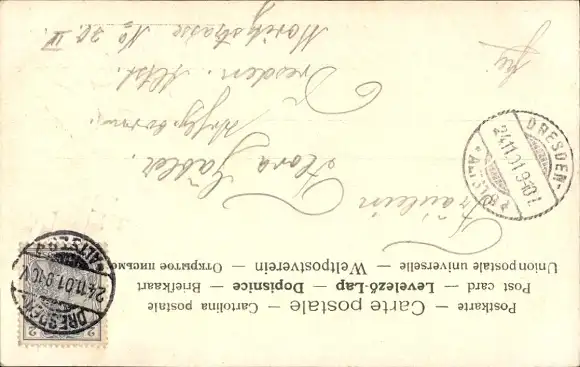 Postkarte — Carte postale — Cartolina postale
Post card — Levelező-Lap — Dopisnice — Briefkaart
Unionpostale universelle — Weltpostverein — Открытое письмо
Fräulein
Flora Gabler.
Dresden. Altst.
Moritzstrasse No 20. III
DRESDEN-ALTST.
24.11.01.9-10V.
DRESDEN-ALTST.
24.11.01.9-10V.
2